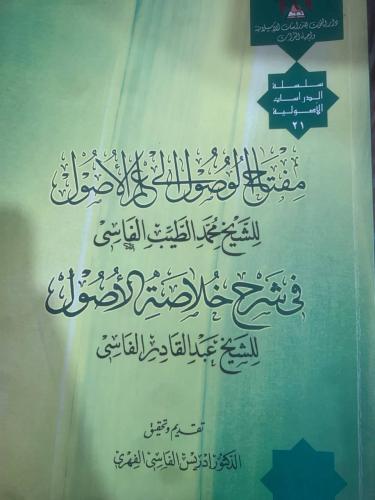 دار البحوث للدراسات الإسلامية
وإحياء التراث
سلسلة
الدراسات
الأصولية
٢١
مفتاح الوصول إلى علم الأصول
للشيخ محمد الطيب الفاسي
في شرح خلاصة الأصول
للشيخ عبد القادر الفاسي
تقديم وتحقيق
الدكتور إدريس الفاسي الفهري